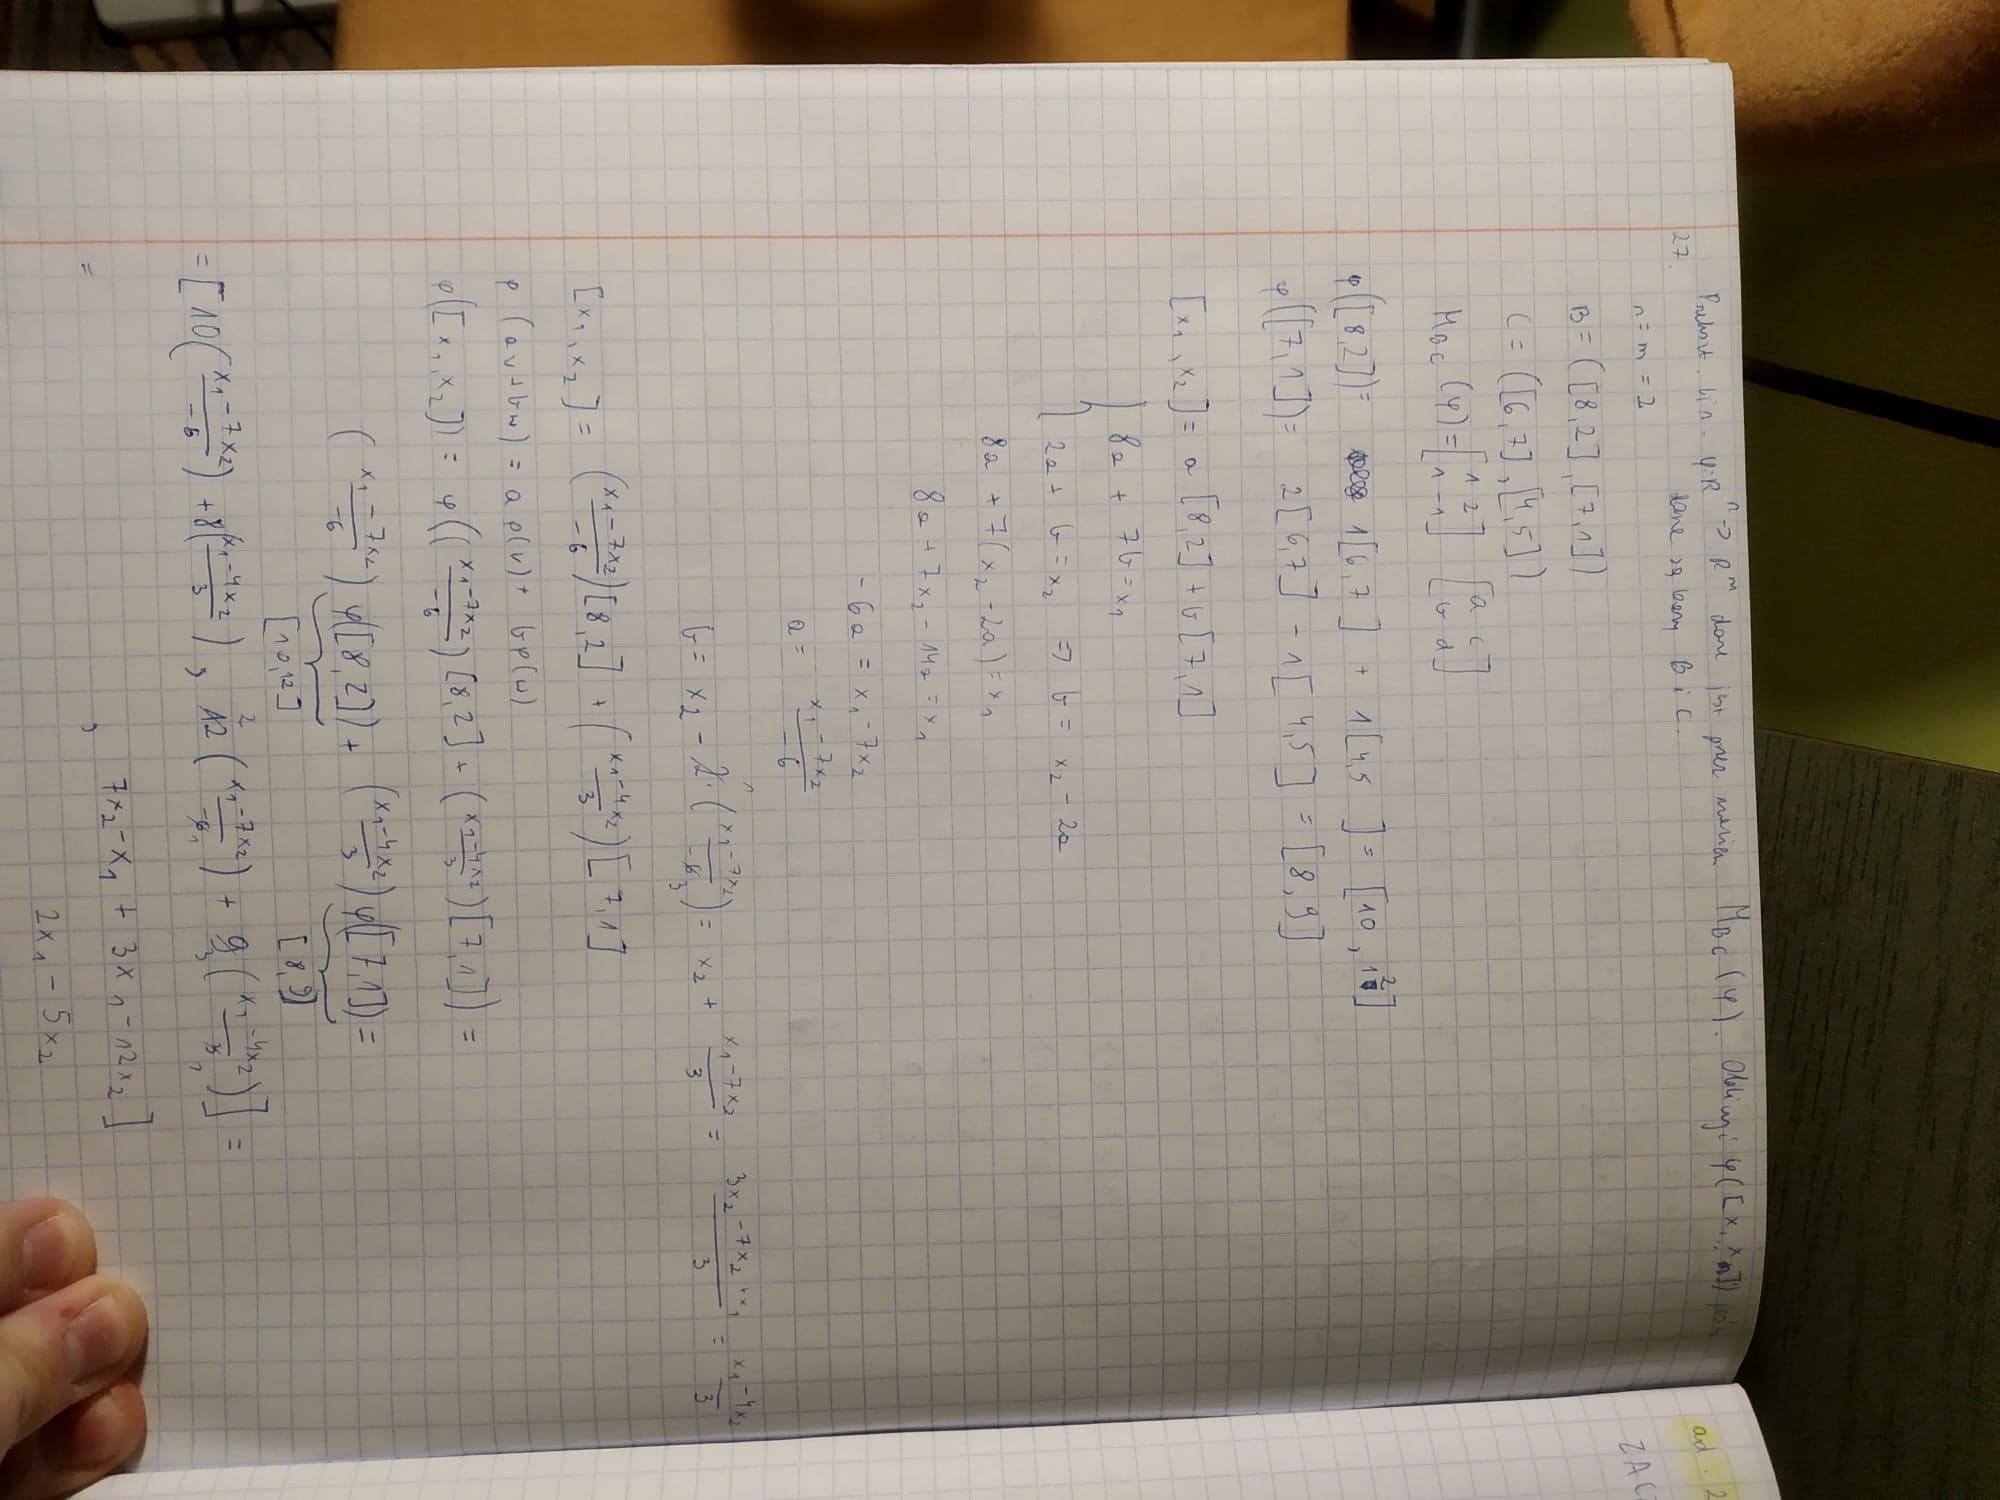 27. Przekszt. lin. φ: Rⁿ → Rᵐ dane jest przez macierz M_BC (φ). Oblicz φ([x₁,xₙ]) jeśli
dane są bazy B i C.
n = m = 2
B = ([8,2],[7,1])
C = ([6,7],[4,5])
M_BC (φ) = [1 2 / 1 -1] [a c / b d]
φ([8,2]) = 1[6,7] + 1[4,5] = [10, 12]
φ([7,1]) = 2[6,7] - 1[4,5] = [8,9]
[x₁,x₂] = a [8,2] + b [7,1]
{ 8a + 7b = x₁
{ 2a + b = x₂ ⇒ b = x₂ - 2a
8a + 7(x₂ - 2a) = x₁
8a + 7x₂ - 14a = x₁
-6a = x₁ - 7x₂
a = (x₁ - 7x₂)/-6
b = x₂ - 2¹·((x₁ - 7x₂)/-6₃) = x₂ + (x₁ - 7x₂)/3 = (3x₂ - 7x₂ + x₁)/3 = (x₁ - 4x₂)/3
[x₁,x₂] = ((x₁ - 7x₂)/-6)[8,2] + ((x₁ - 4x₂)/3)[7,1]
φ(av + bw) = a φ(v) + bφ(w)
φ([x₁,x₂]) = φ(((x₁ - 7x₂)/-6)[8,2] + ((x₁ - 4x₂)/3)[7,1]) =
((x₁ - 7x₂)/-6) φ([8,2]) + ((x₁ - 4x₂)/3) φ([7,1]) =
[10,12] [8,9]
= [10((x₁ - 7x₂)/-6) + 8((x₁ - 4x₂)/3), 12²((x₁ - 7x₂)/-6₁) + 9₃((x₁ - 4x₂)/3₁)] =
= , 7x₂ - x₁ + 3x₁ - 12x₂]
2x₁ - 5x₂
ad. 2